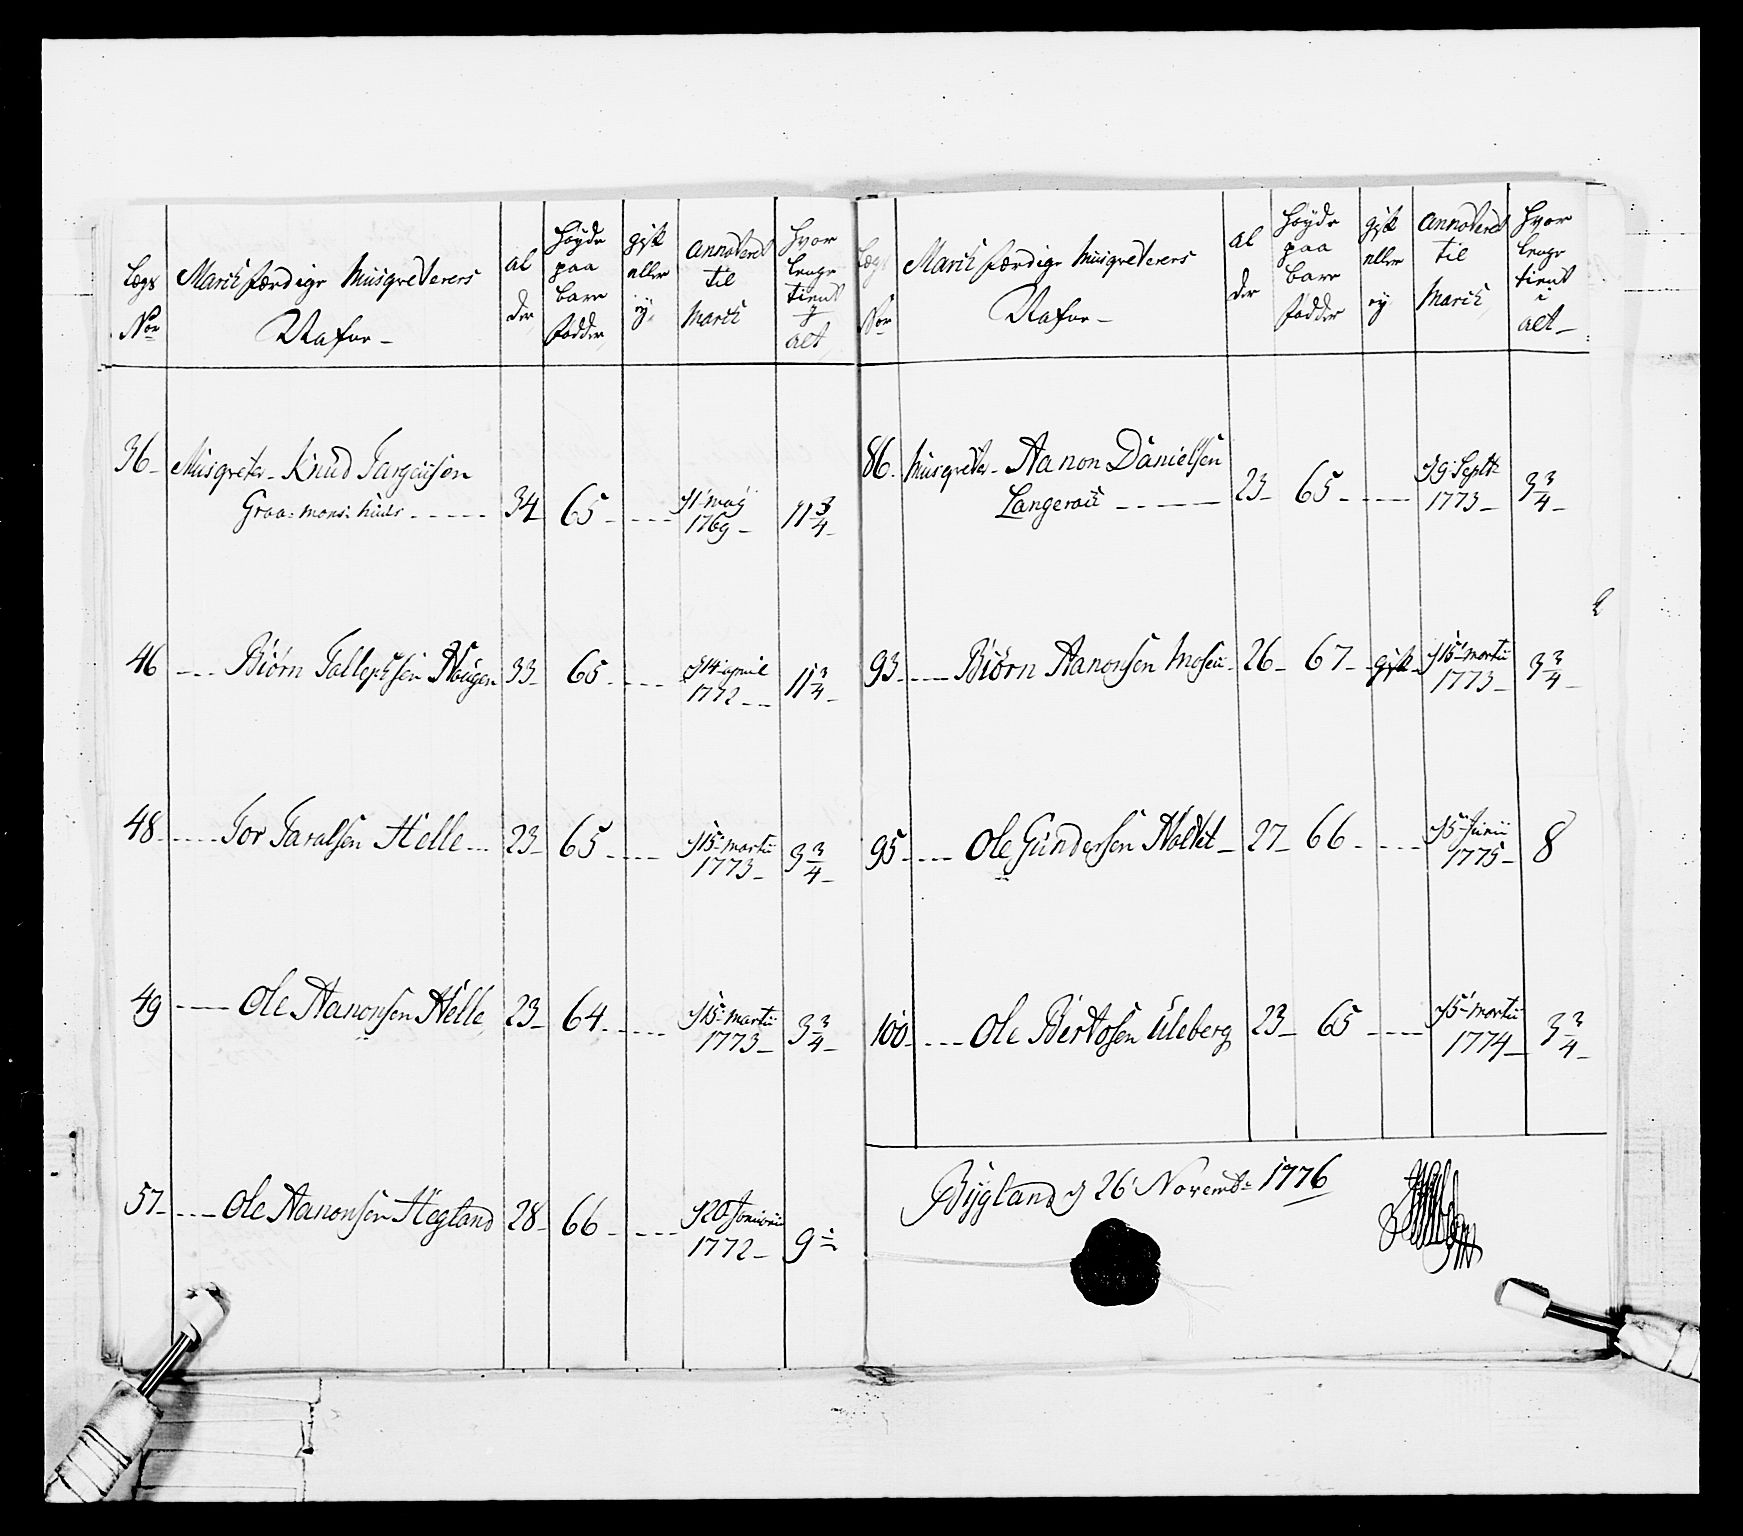 Lægs Nor | March færdige Musqveterers Nafne | al der | Høyde paa bare Fødder | gift eller ey | annoteret til March | Hvor lenge tient i alt
36 Musqveter Knud Targiusen
Graa-mons-huus 34 65 d 1 maÿ 1769 11 3/4
46 Biørn Tallefsen Hougen 33 65 d 14 april 1772 11 3/4
48 Tor Taralsen Helle 23 65 d 15 martii 1773 3 3/4
49 Ole Aanonsen Helle 23 64 d 15 martii 1773 3 3/4
57 Ole Aanonsen Hegland 28 66 d 20 Januarii 1772 9
Lægs Nor | March færdige Musqveterers Nafne | al der | Høyde paa bare Fødder | gift eller ey | annoteret til March | Hvor lenge tient i alt
86 Musqveter Aanon Danielsen
Langerac 23 65 d 9 Septb 1773 3 3/4
93 Biørn Aanonsen Moseu 26 67 gift d 15 martii 1773 3 3/4
95 Ole Gundersen 27 66 d 5 Junii 1775 8
100 Ole Bertosen Uleberg 23 65 d 5 martii 1774 3 3/4
Bÿgland d 26 Novemb: 1776